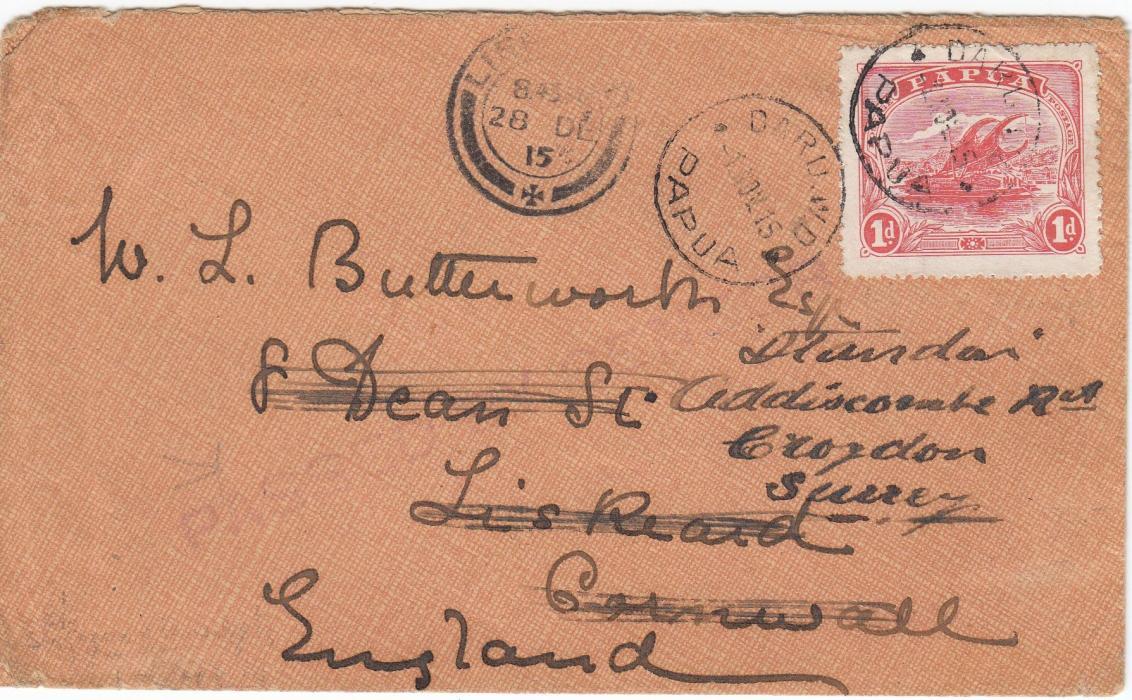 LIS
8.45
28 DE
15
DARU.W.D
PAPUA
DARU.
PAPUA
PAPUA
POSTAGE
1d 1d
W. L. Butterworth Esq
8 Dean St
Liskeard
Cornwall
England
Addiscombe Rd
Croydon
Surrey